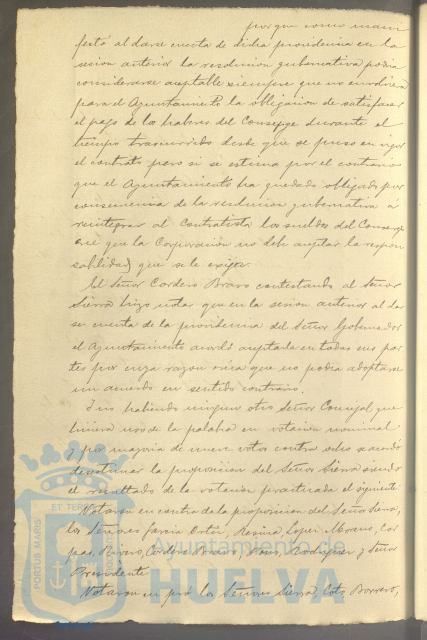 porque como mani
festó al darse cuenta de dicha providencia en la
sesion anterior la resolucion gubernativa podia
considerarse aceptable siempre que no envolviera
para el Ayuntamiento la obligacion de satisfacer
el pago de los haberes del Conserge durante el
tiempo trascurrido desde que se puso en vigor
el contrato pero si se estima por el contrario
que el Ayuntamiento ha quedado obligado por
consecuencia de la resolucion gubernativa á
reintegrar al Contratista los sueldos del Conserge
cré que la Corporacion no debe aceptar la respon
sabilidad que se le exige.
El Señor Cordero Bravo contestando al Señor
Sierra hizo notar que en la sesion anterior al dar
se cuenta de la providencia del Señor Gobernador
el Ayuntamiento acordó aceptarla en todas sus par
tes por cuya razon creia que no podia adoptarse
un acuerdo en sentido contrario.
Y no habiendo ningun otro Señor Concejal que
hiciera uso de la palabra en votacion nominal
y por mayoria de nueve votos contra ocho se acordó
desestimar la proposicion del Señor Sierra siendo
el resultado de la votacion practicada el siguiente.
Votaron en contra de la proposicion del Señor Sierra,
los Señores Garcia Ortiz, Resina, Lopez, Moreno, Cor
Rivero, Cordero Bravo, Rodriguez y Señor
Presidente
Votaron en pró los Señores Sierra, Coto, Borrero,
ET TERRAE
PORTUS MARIS
CUSTODIA
Ayuntamiento de
HUELVA